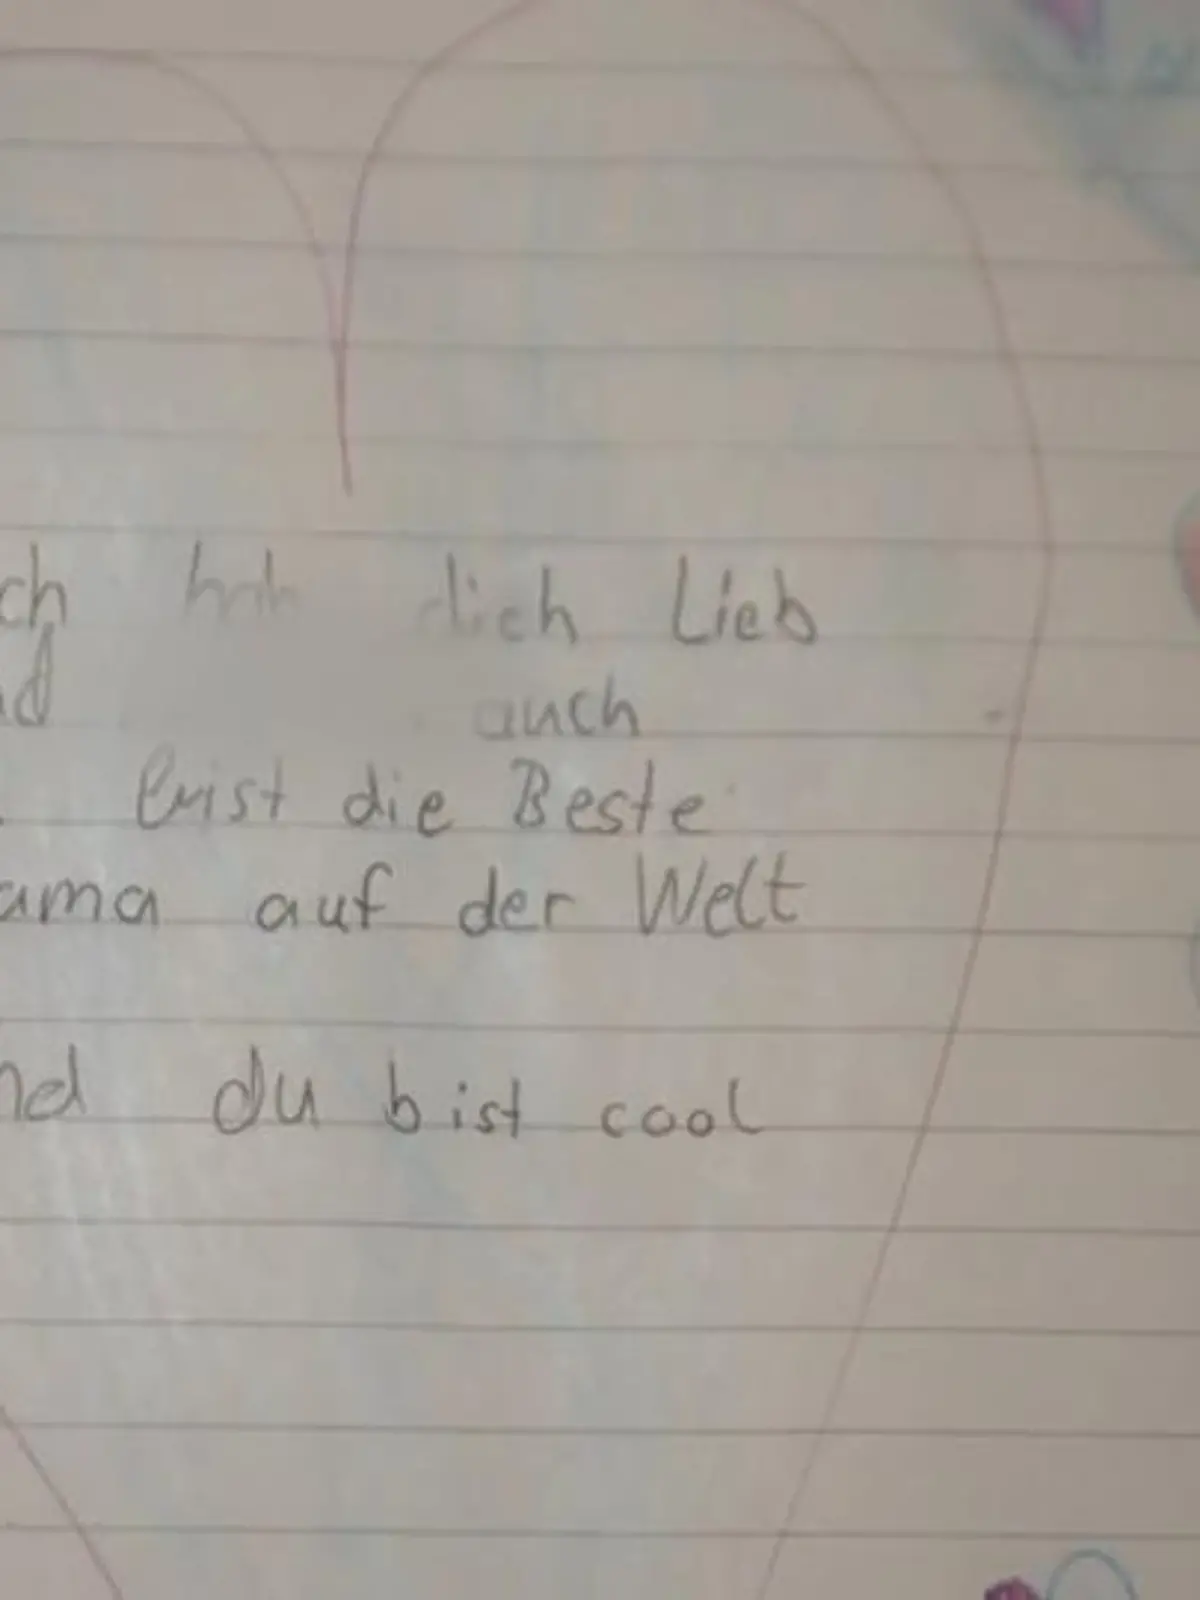 ch hab dich Lieb
nd auch
bist die Beste
ama auf der Welt
nd du bist cool